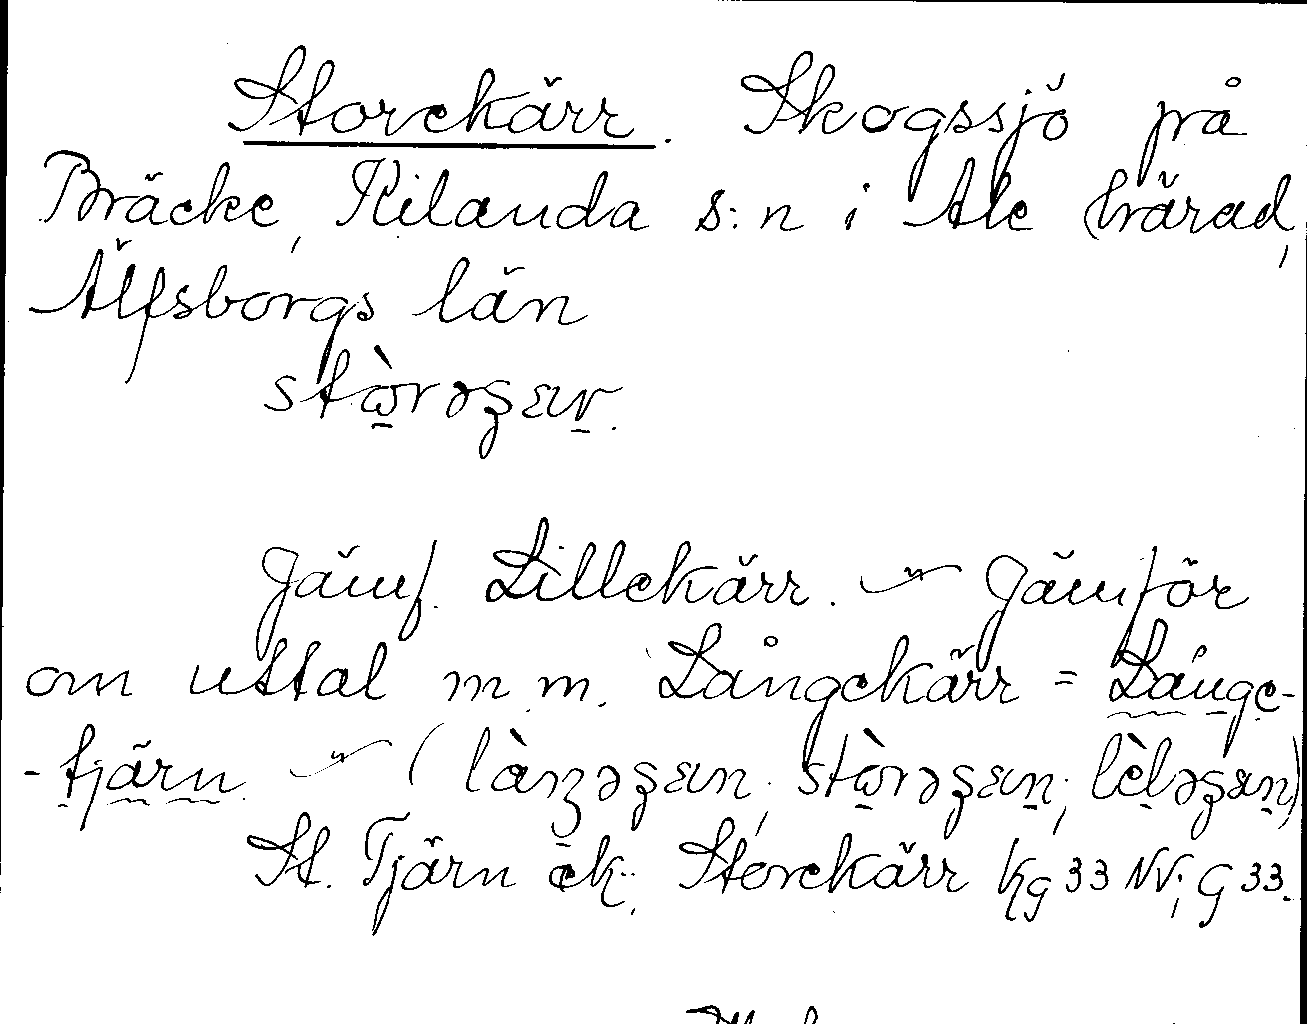 Storekärr. Skogssjö på
Bräcke, Kilanda s:n i Ale härad,
Älfsborgs län
stòrəʂæɳ.
Jämf. Lillekärr. — Jämför
om uttal m.m. Långekärr = Långe-
-tjärn — (
St. Tjärn ek. Storekärr Kg 33 NV; G 33.